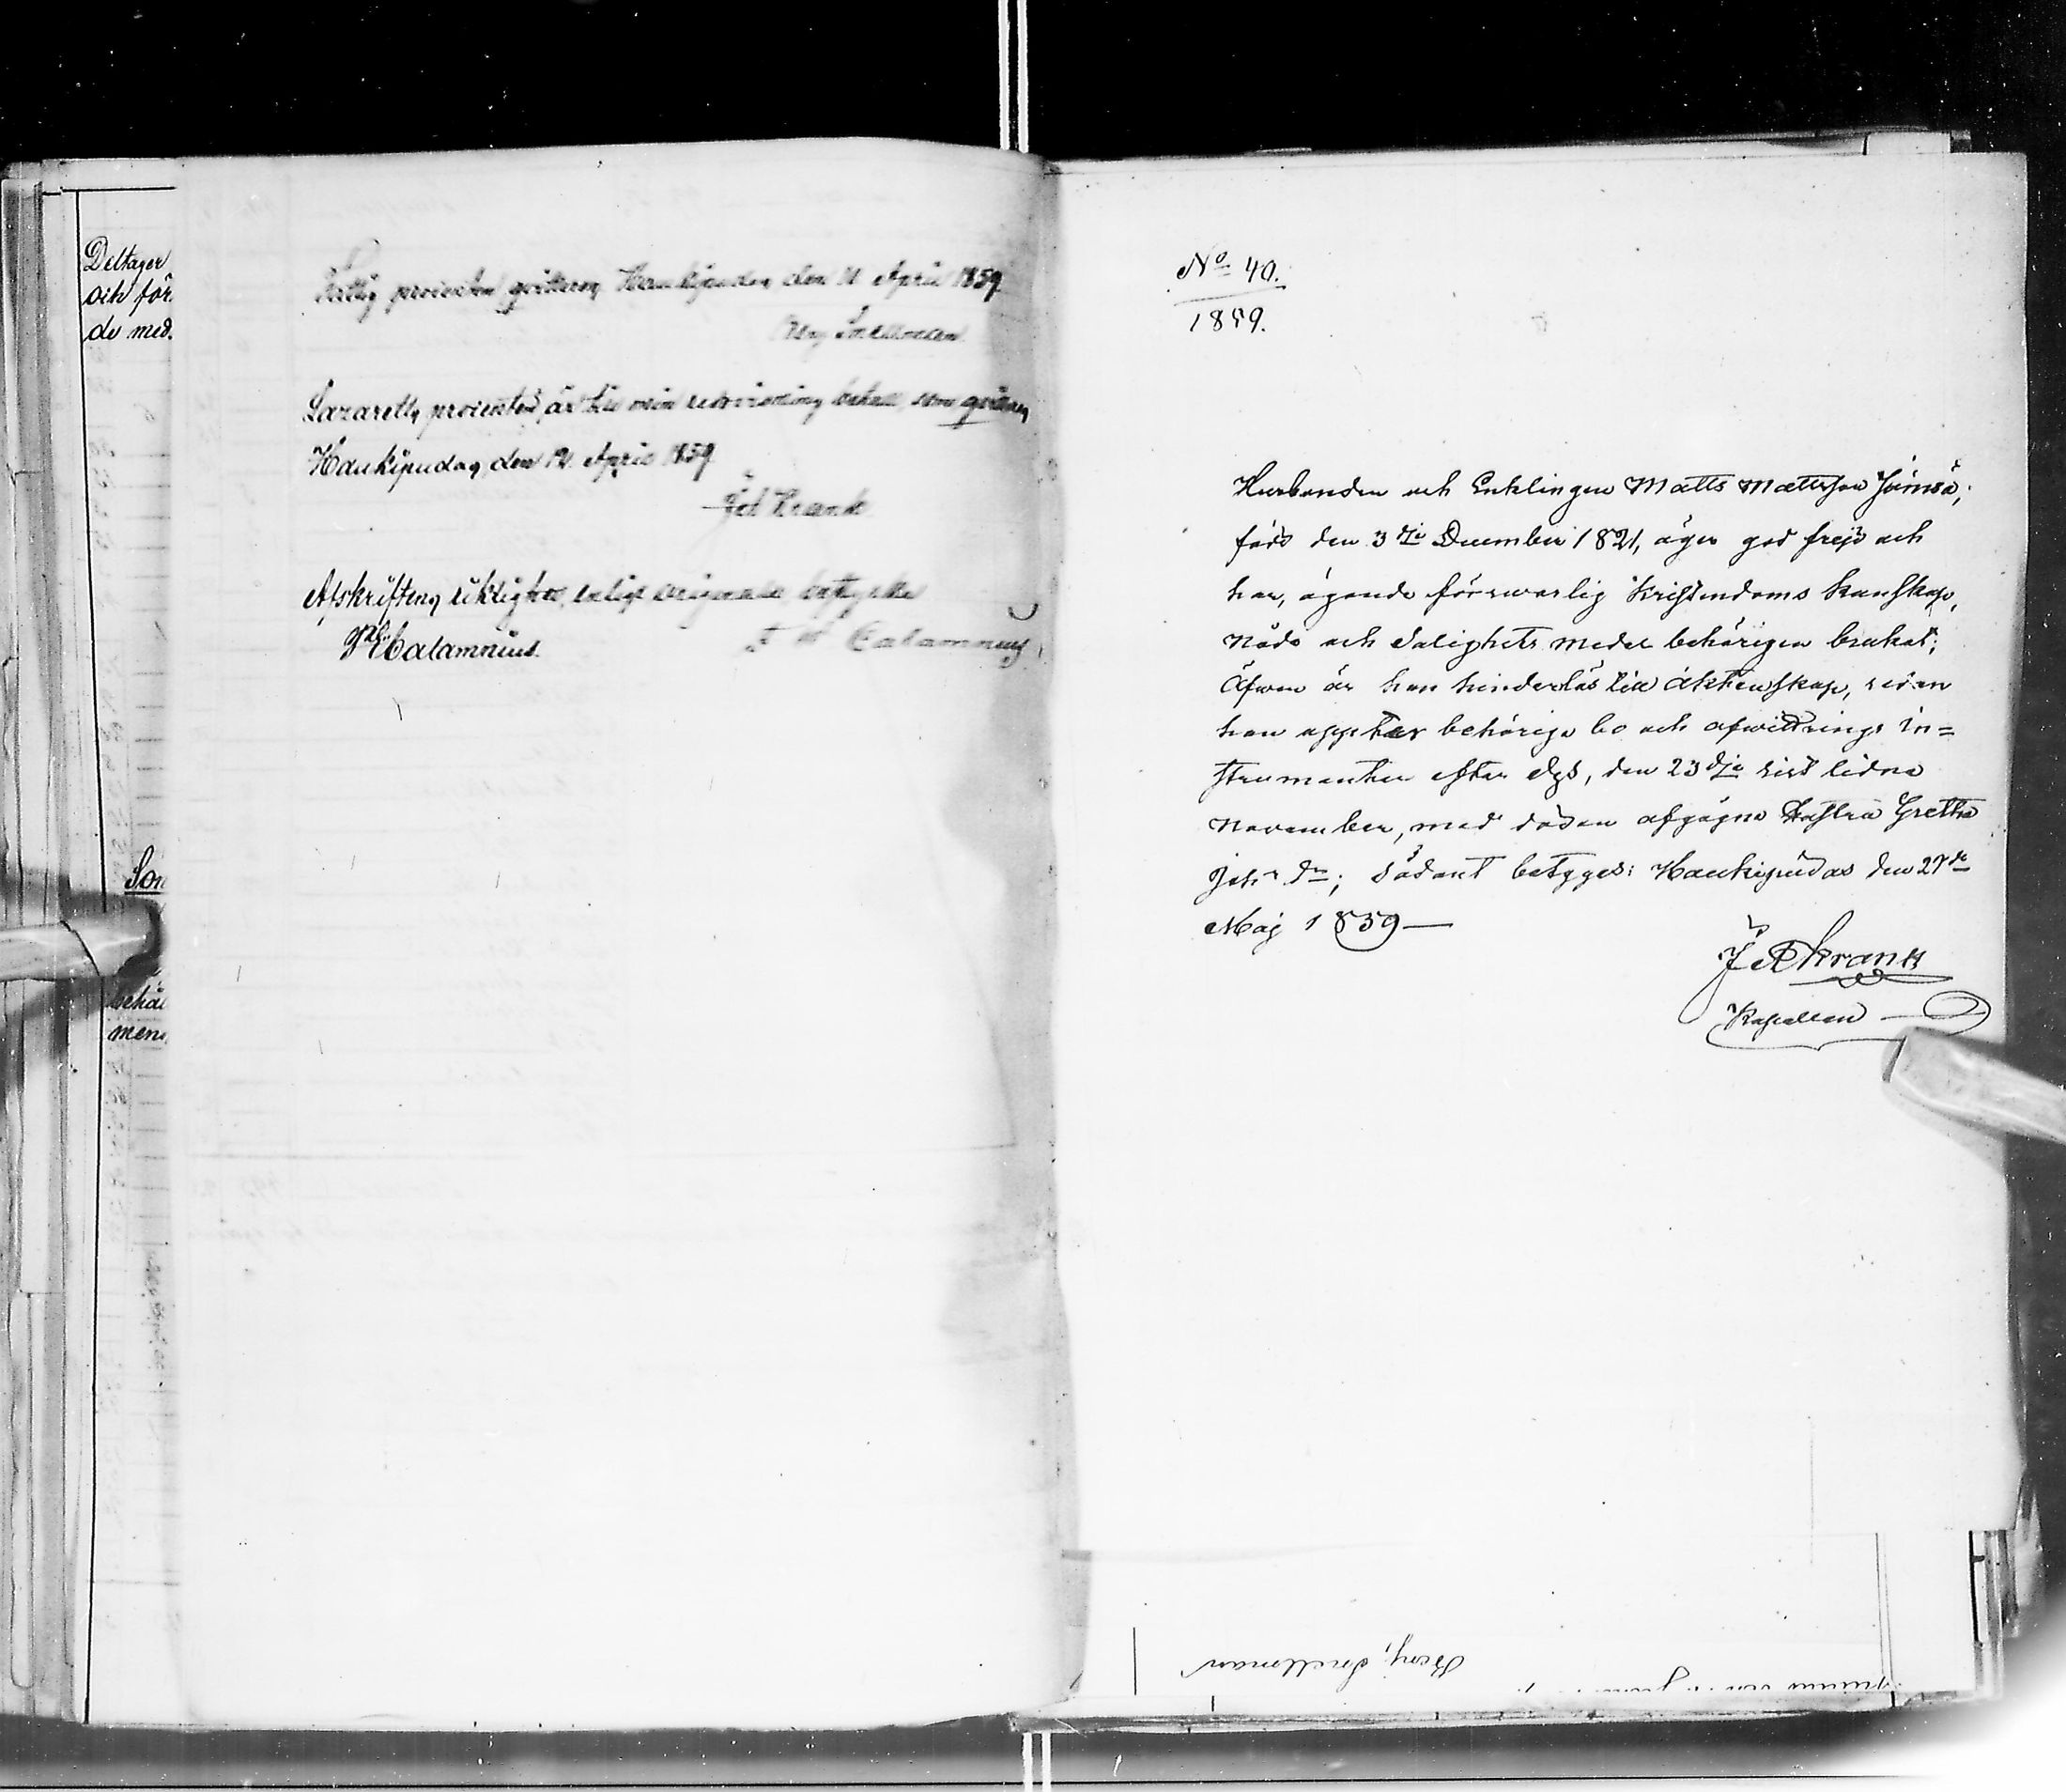 Deltager
och för
de med.
Son
behål
men
Fattig procenten qvitteras Haukipudas den 12 April 1859
Benj Snellman
Lazaretts procenten är till min redovisning betald, som qvitteras
Haukipudas, den 12 April 1859
J A Krank
Afskriftens riktighet, enligt originalet betygar
Calamnius.
Calamnius
No 40.
1859.
Husbonden och Enklingen Matts Mattsson Jämsä,
född den 3dje December 1821, äger god frejd och
har, ägande försvarlig Kristendoms kunskap,
Nåds och Salighets medel behörigen brukat;
Äfven är han hinderlös till äktenskap, sedan
han uppter behöriga bo och afvittrings in=
strumenter efter dess, den 23dje sist lidne
November, med döden afgågne Hustru Gretha
Johs dr; sådant betygas: Haukipudas den 27de
Maj 1859 —
J A Krank
Kapellan
Benj. Snellman